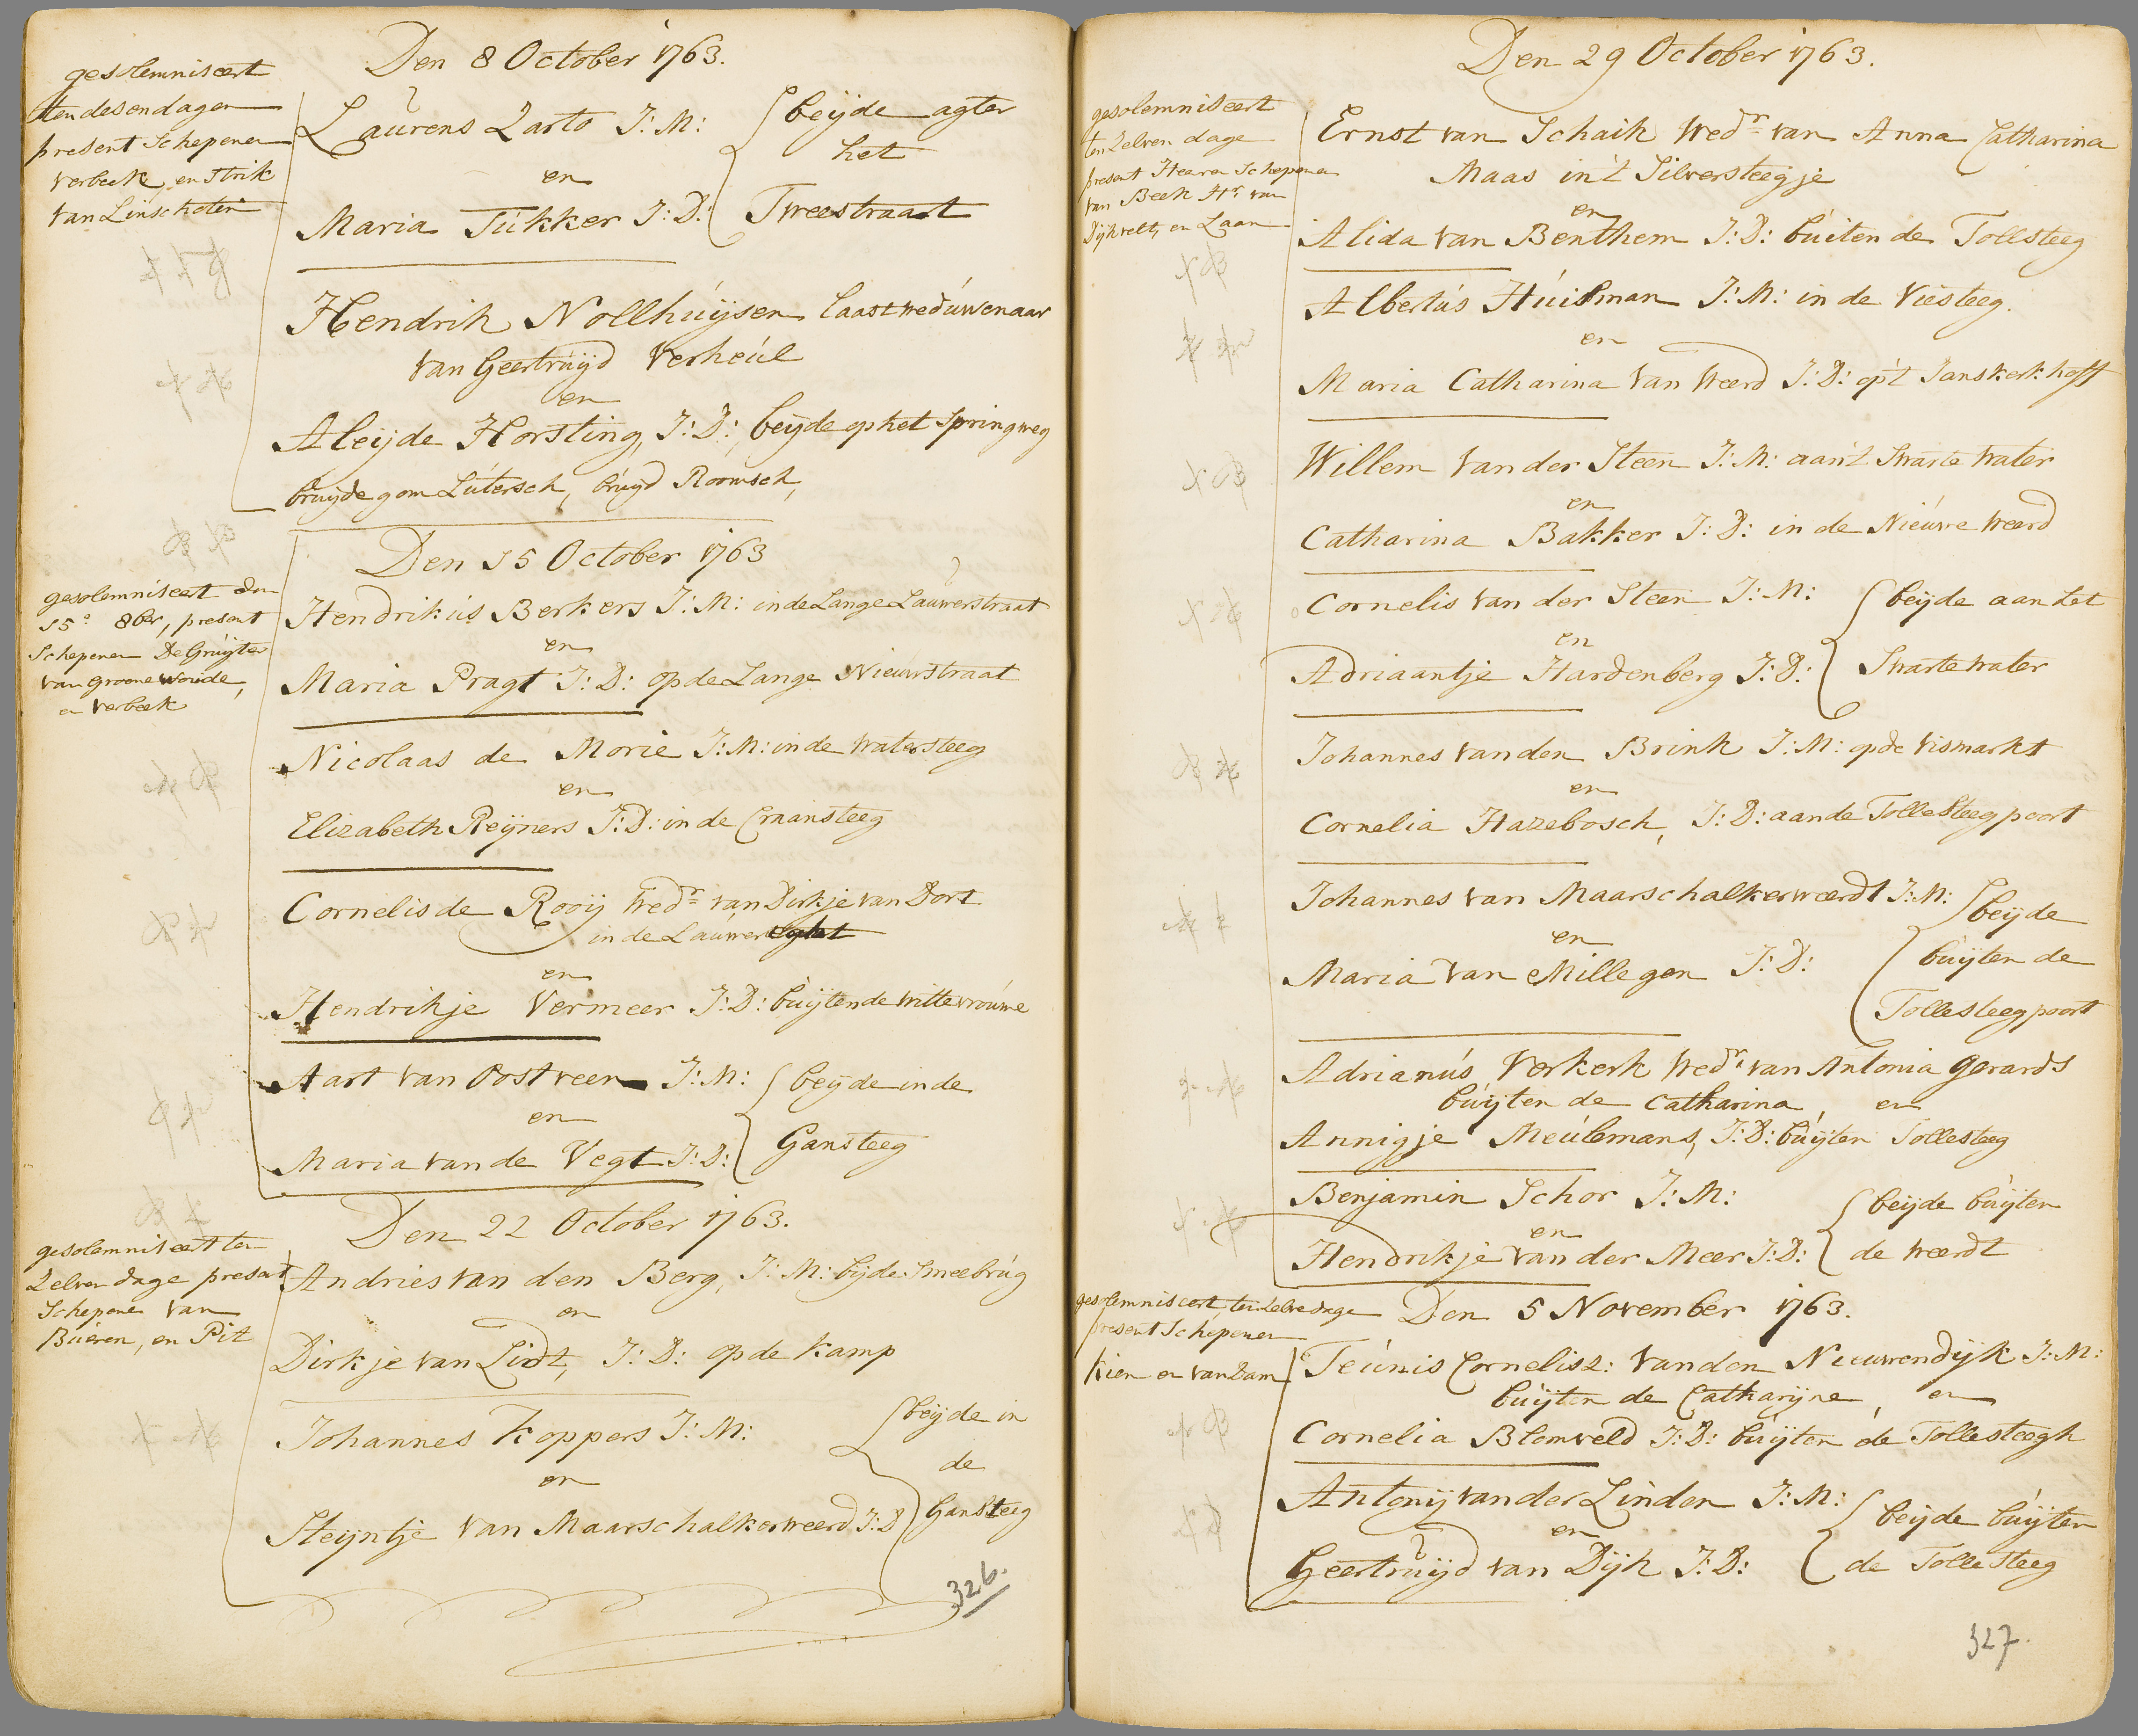 Den 8 October 1763.
gesolemniseert
ten desen dagen
present Schepenen
Verbeek en Strik
van Linschoten
Laurens Larto J: M: beijde agter
het
en
Maria Tukker J: D: Tweestraat
Hendrik Nollhuijsen laast weduwenaar
van Geertruijd Verheul
en
Aleijde Horsting, J: D: beijde op het Springweg
bruijdegom Lutersch, bruijd Roomsch,
Den 15 October 1763
gesolemniseert den
15e 8ber, present
Schepenen De Gruijter
van Groenewoude,
en Verbeek
Hendrikus Berkers J: M: in de Lange Lauwerstraat
en
Maria Pragt J: D: op de Lange Nieuwstraat
Nicolaas de Morie J: M: in de Watersteeg
en
Elizabeth Reijners J: D: in de Craansteeg
Cornelis de Rooij Wedr van Dirkje van Dort
in de Lauwereght
en
Hendrikje Vermeer J: D: buijten de Wittevrouwe
Aart van Oostveen J: M: beijde in de
en
Maria van de Vegt J: D: Gansteeg
Den 22 October 1763.
gesolemniseert ten
zelven dage present
Schepenen van
Bueren, en Pit
Andries van den Berg, J: M: bij de Smeebrug
en
Dirkje van Lidt, J: D: op de Kamp
Johannes Koppers J: M: beijde in
de
en
Steijntje van Maarschalkerweerd J: D Gansteeg
326.
Den 29 October 1763.
gesolemniseert
ten zelven dage
present Heeren Schepenen
van Beek Hr van
Dijkvelt, en Laan
Ernst van Schaik Wedr van Anna Catharina
Maas in 't Silversteegje
en
Alida van Benthem J: D: buiten de Tollsteeg
Albertus Huisman J: M: in de Viesteeg.
en
Maria Catharina van Weerd J: D: op 't Janskerkhoff
Willem van der Steen J: M: aan 't Swarte Water
en
Catharina Bakker J: D: in de Nieuwe Weerd
Cornelis van der Steen J: M: beijde aan het
en
Adriaantje Hardenberg J: D: Swarte water
Johannes van den Brink J: M: op de Vismarkt
en
Cornelia Hazebosch, J: D: aan de Tollesteegpoort
Johannes van Maarschalkerweerdt J: M: beijde
en
Maria van Millegen J: D: buijten de
Tollesteegpoort
Adrianus Verkerk Wedr van Antonia Gerards
buijten de Catharina, en
Annigje Meulemans, J: D: buijten Tollesteeg
Benjamin Schor J: M: beijde buijten
en
Hendrikje van der Meer J: D: de Weerdt
gesolemniseert, ten zelve dage Den 5 November 1763.
present Schepenen
Kien en van Dam
Teunis Cornelisz: van den Nieuwendijk J: M:
buijten de Catharijne, en
Cornelia Blomveld J: D: buijten de Tollesteegh
Antonij van der Linden J: M: beijde buijten
en
Geertruijd van Dijk J: D: de Tollesteeg
327.